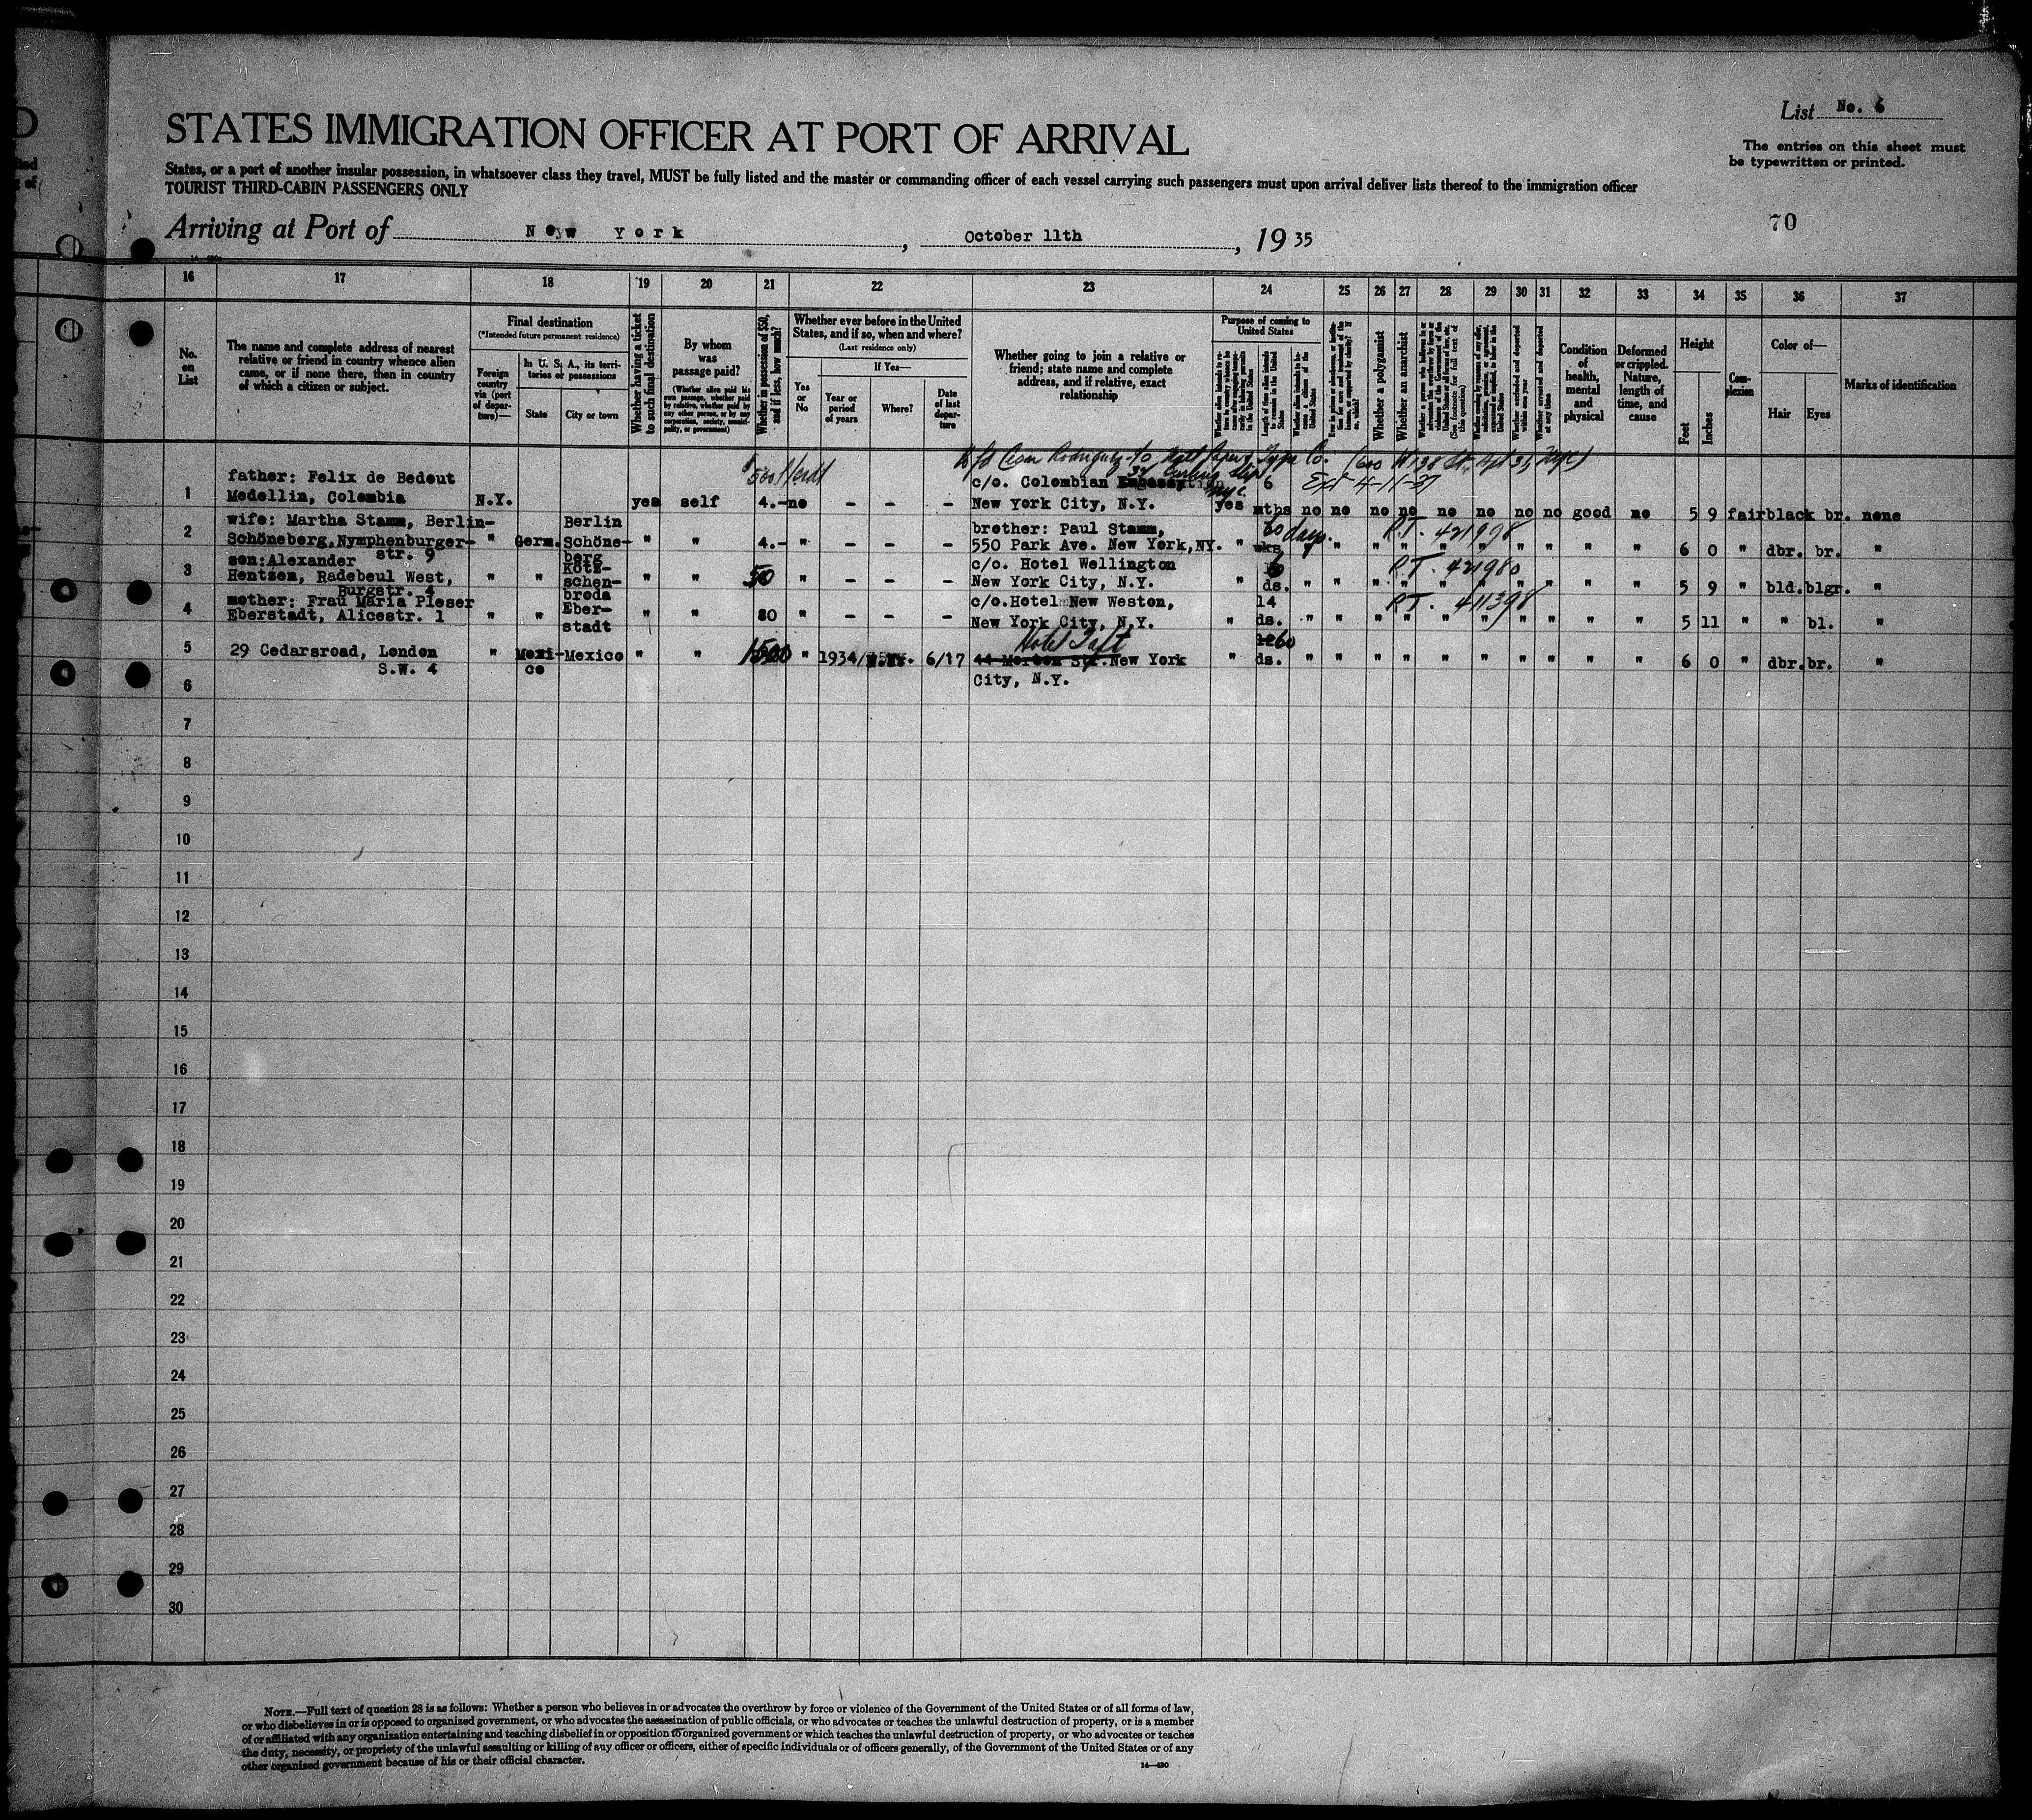 List No. 6
STATES IMMIGRATION OFFICER AT PORT OF ARRIVAL
The entries on this sheet must
be typewritten or printed.
States, or a port of another insular possession, in whatsoever class they travel, MUST be fully listed and the master or commanding officer of each vessel carrying such passengers must upon arrival deliver lists thereof to the immigration officer
TOURIST THIRD-CABIN PASSENGERS ONLY
70
Arriving at Port of New York, October 11th, 1935
16 17 18 19 20 21 22 23 24 25 26 27 28 29 30 31 32 33 34 35 36 37
No.
on
List
The name and complete address of nearest
relative or friend in country whence alien
came, or if none there, then in country
of which a citizen or subject.
Final destination
(*Intended future permanent residence)
Foreign
country
via (port
of depar-
ture)—
In U. S. A., its terri-
tories or possessions
State
City or town
Whether having a ticket
to such final destination
By whom
was
passage paid?
(Whether alien paid his
own passage, whether paid
by relative, whether paid by
any other person, or by any
corporation, society, munici-
pality, or government)
Whether in possession of $50,
and if less, how much?
Whether ever before in the United
States, and if so, when and where?
(Last residence only)
Yes
or
No
If Yes—
Year or
period
of years
Where?
Date
of last
depar-
ture
Whether going to join a relative or
friend; state name and complete
address, and if relative, exact
relationship
Purpose of coming to
United States
Length of time alien intends
to remain in the United
States
Whether alien intends to be-
come a citizen of the
United States
Whether a polygamist
Whether an anarchist
Condition
of
health,
mental
and
physical
Deformed
or crippled.
Nature,
length of
time, and
cause
Height
Feet
Inches
Com-
plexion
Color of—
Hair
Eyes
Marks of identification
600 W 138 St.
1 father: Felix de Bedout
Medellin, Colombia N.Y. yes self 4.- no – – – c/o. Colombian
New York City, N.Y. yes 6 mths no no no no no no no no good no 5 9 fair black br. none
2 wife: Martha Stamm, Berlin-
Schöneberg, Nymphenburger-
str. 9 " Germ. Berlin
Schöne-
berg " " 4.- " – – – brother: Paul Stamm,
550 Park Ave. New York, NY. " 60 days. " " " " " " " " " " 6 0 " dbr. br. "
R.T. 421998
3 son: Alexander
Hentzen, Radebeul West,
Burgstr. 4 " " Kötz-
schen-
broda " " 50 " – – – c/o. Hotel Wellington
New York City, N.Y. " ds. " " " " " " " " " " 5 9 " bld. blgr. "
R.T. 421980
4 mother: Frau Maria Pleser
Eberstadt, Alicestr. 1 " " Eber-
stadt " " 80 " – – – c/o. Hotel New Weston,
New York City, N.Y. " 14
ds. " " " " " " " " " " 5 11 " " bl. "
R.T. 411398
5 29 Cedarsroad, London
S.W. 4 " Mexi-
co Mexico " " 1500 " 1934/ 6/17 Hotel Taft
44 Morton Str. New York
City, N.Y. " 60
ds. " " " " " " " " " " 6 0 " dbr. br. "
6
7
8
9
10
11
12
13
14
15
16
17
18
19
20
21
22
23
24
25
26
27
28
29
30
NOTE.—Full text of question 28 is as follows: Whether a person who believes in or advocates the overthrow by force or violence of the Government of the United States or of all forms of law,
or who disbelieves in or is opposed to organized government, or who advocates the assassination of public officials, or who advocates or teaches the unlawful destruction of property, or is a member
of or affiliated with any organization entertaining and teaching disbelief in or opposition to organized government or which teaches the unlawful destruction of property, or who advocates or teaches
the duty, necessity, or propriety of the unlawful assaulting or killing of any officer or officers, either of specific individuals or of officers generally, of the Government of the United States or of any
other organized government because of his or their official character.
14—430